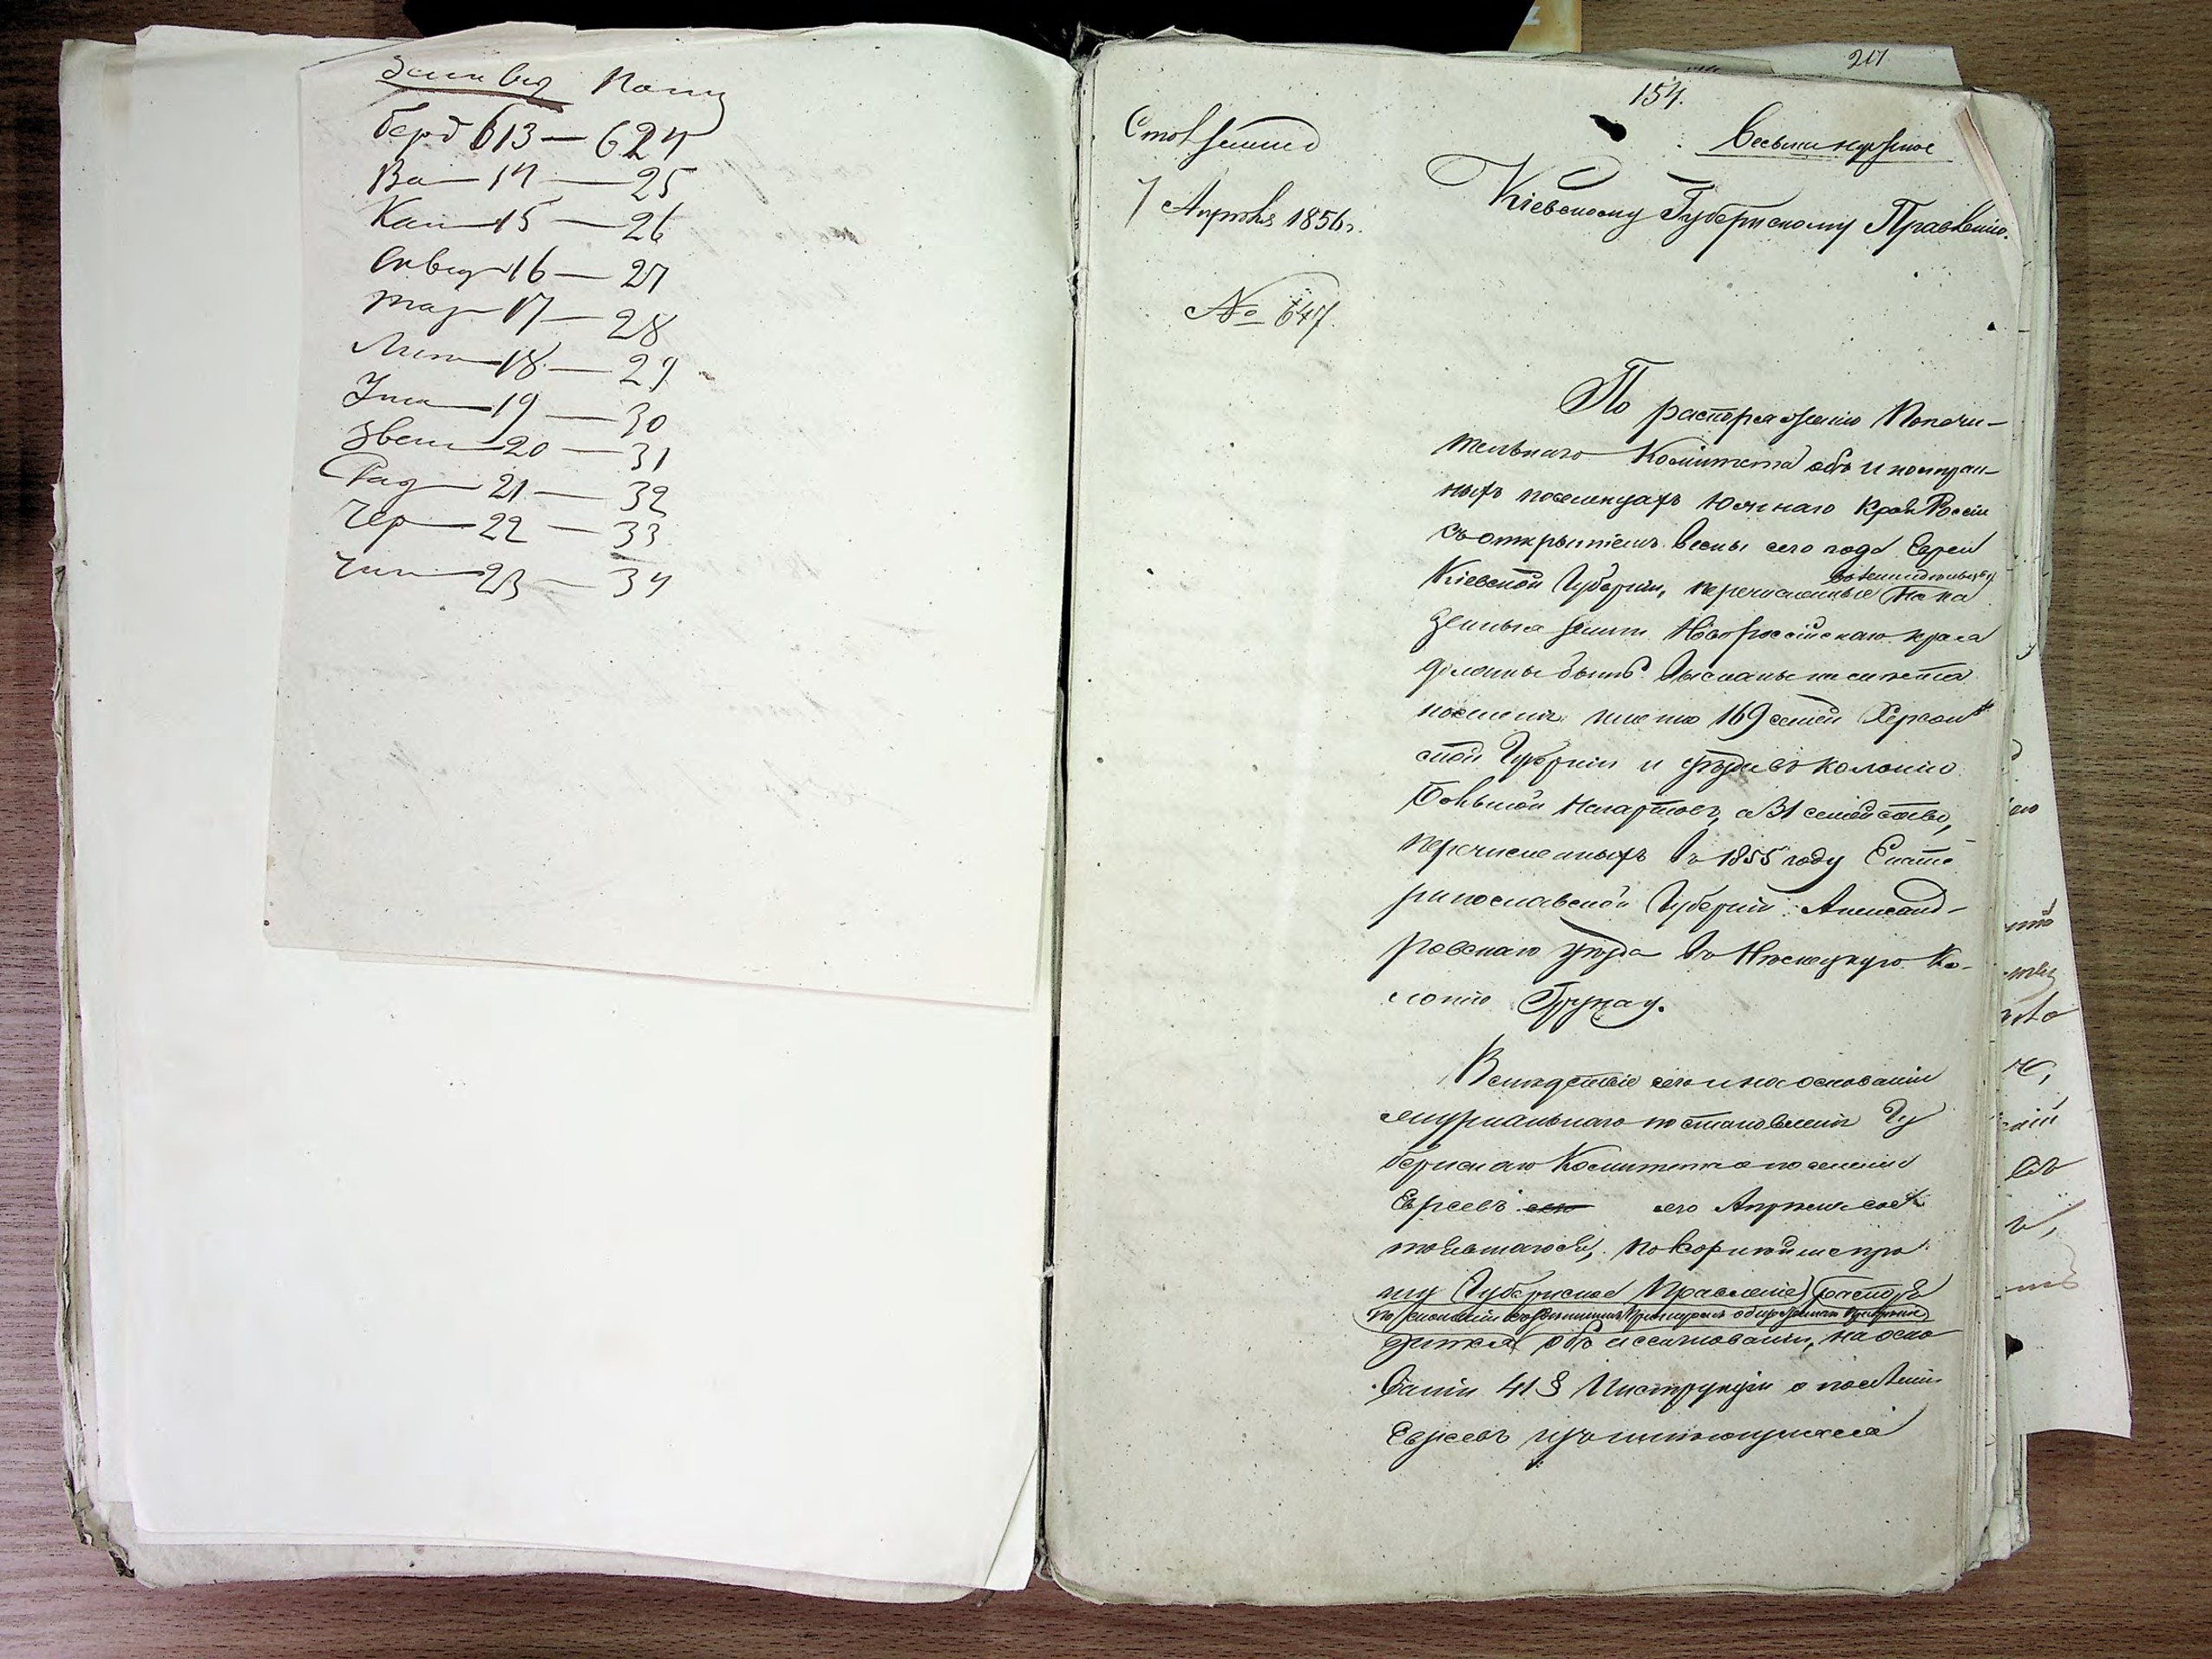 Зем Суд Полиц
Берд 613 — 624
Ва — 14 — 25
Кан — 15 — 26
Сквир — 16 — 27
Тар — 17 — 28
Лип — 18 — 29
Ума — 19 — 30
Звен — 20 — 31
Рад — 21 — 32
Чер — 22 — 33
Чиг — 23 — 34
217
154.
Весьма нужное
7 Апрѣля 1856 г.
№ 647.
Кіевскому Губернскому Правленію.
По распоряженію Попечи-
тельнаго Комитета объ иностран-
ныхъ поселенцахъ Южнаго Края Россіи
съ открытіемъ весны сего года Евреи
Кіевской Губерніи, перечисленные на ка
въ земледѣльцы
зенныя земли Новороссійскаго края
должны быть высланы на мѣста
поселенія именно 169 семей Херсон
ской Губерніи и уѣзда въ колонію
Большой Нагартовъ, а 31 семейство,
перечисленныхъ въ 1855 году Екате
ринославской Губерніи Александ-
ровскаго уѣзда въ Нѣмецкую Ко-
лонію Грунау.
Вслѣдствіе сего и на основаніи
журнальнаго постановленія Гу
бернскаго Комитета поселенія
Евреевъ сего Апрѣля сост
оявшагося, покорнѣйше про
шу Губернское Правленіе распоря
диться объ ассигнованіи, на осно
ваніи 41 § Инструкціи о поселеніи
Евреевъ изъ